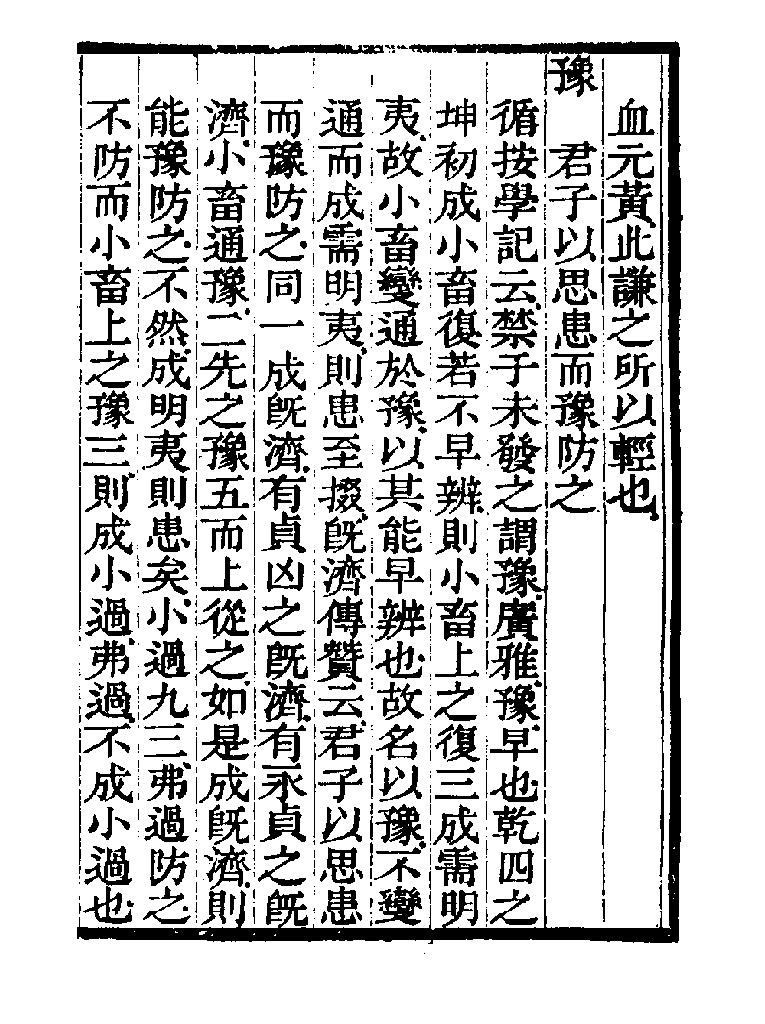 血元黃此謙之所以輕也
豫　君子以思患而豫防之
循按學記云禁于未發之謂豫廣雅豫早也乾四之
坤初成小畜復若不早辨則小畜上之復三成需明
夷故小畜變通於豫以其能早辨也故名以豫不變
通而成需明夷則患至掇既濟傳贊云君子以思患
而豫防之同一成既濟有貞凶之既濟有永貞之既
濟小畜通豫二先之豫五而上從之如是成既濟則
能豫防之不然成明夷則患矣小過九三弗過防之
不防而小畜上之豫三則成小過弗過不成小過也